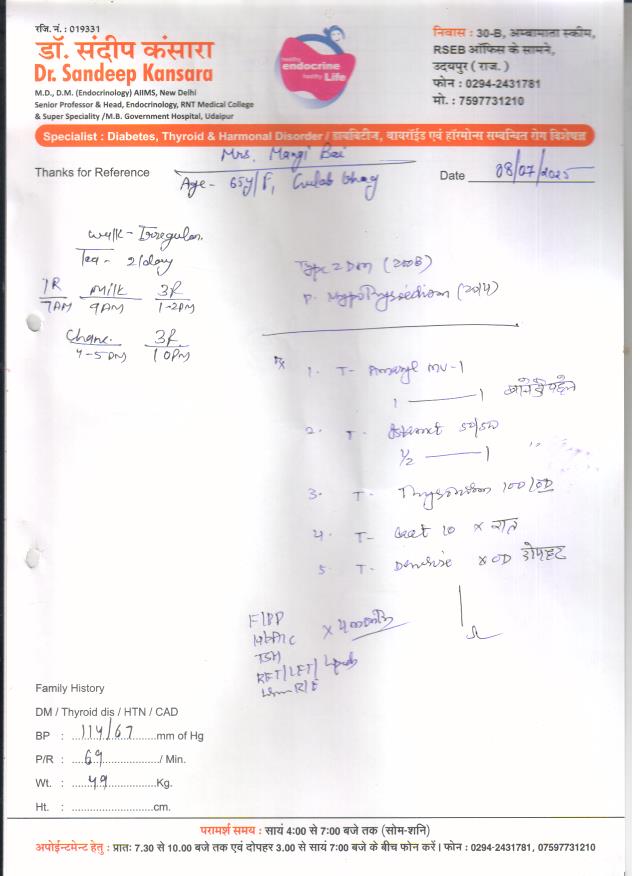 रजि. नं. : 019331
डॉ. संदीप कंसारा
Dr. Sandeep Kansara
M.D., D.M. (Endocrinology) AIIMS, New Delhi
Senior Professor & Head, Endocrinology, RNT Medical College
& Super Speciality /M.B. Government Hospital, Udaipur
healthy
endocrine
healthy
Life
निवास : 30-B, अम्बामाता स्कीम,
RSEB ऑफिस के सामने,
उदयपुर ( राज. )
फोन : 0294-2431781
मो. : 7597731210
Specialist : Diabetes, Thyroid & Harmonal Disorder / डायबिटीज, थायरॉईड एवं हॉरमोन्स सम्बन्धित रोग विशेषज्ञ
Thanks for Reference
Mrs. Mangi Bai
Age - 65y/F,
Date 08/07/2025
Walk - Irregular.
Tea - 2/day
1R Milk 3R
7AM 9AM 1-2PM
3R
4-5PM 10PM
Type 2 DM (2008)
P. Hypothyroidism (2014)
Rx 1. T- Amaryl MV-1
1 1 खाने से पहले
2. T- 50/500
1/2 1 "
3. T- 100 OD
4. T- 10 x रात
5. T- x OD दोपहर
F/PP
HbA1c x 4 month
TSH
RFT/LFT/Lipids
R/E
Family History
DM / Thyroid dis / HTN / CAD
BP : 114/67 mm of Hg
P/R : 69 / Min.
Wt. : 49 Kg.
Ht. : cm.
परामर्श समय : सायं 4:00 से 7:00 बजे तक (सोम-शनि)
अपोईन्टमेन्ट हेतु : प्रातः 7.30 से 10.00 बजे तक एवं दोपहर 3.00 से सायं 7:00 बजे के बीच फोन करें। फोन : 0294-2431781, 07597731210